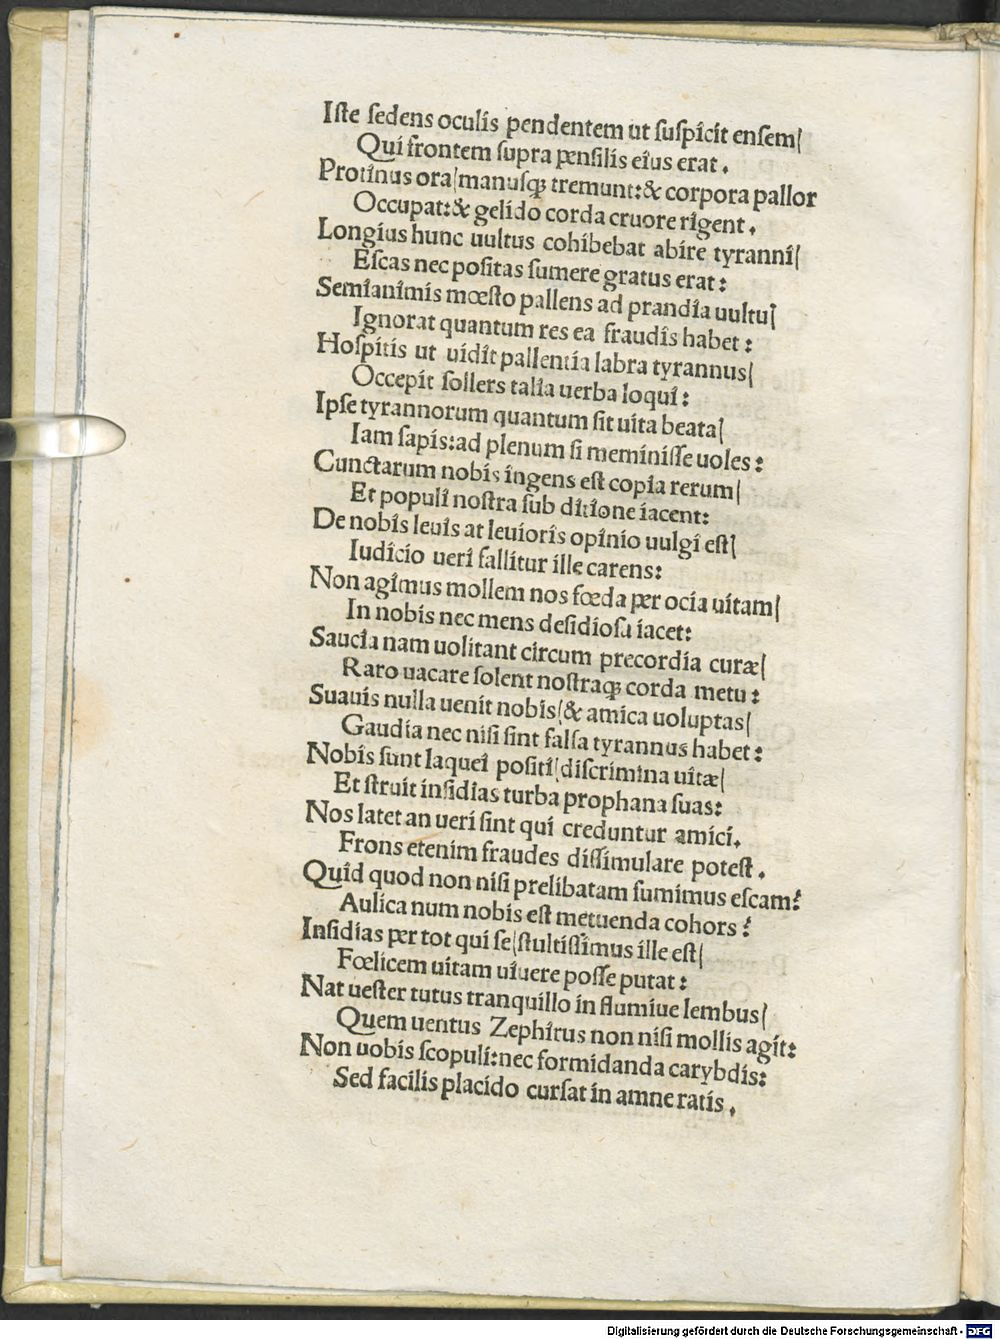 Iste sedens oculis pendentem ut suspicit ensem/
Qui frontem supra pensilis eius erat.
Protinus ora/manusqꝫ tremunt:& corpora pallor
Occupat:& gelido corda cruore rigent.
Longius hunc uultus cohibebat abire tyranni/
Escas nec positas sumere gratus erat:
Semianimis mœsto pallens ad prandia uultu/
Ignorat quantum res ea fraudis habet:
Hospitis ut uidit pallentia labra tyrannus/
Occepit sollers talia uerba loqui:
Ipse tyrannorum quantum sit uita beata/
Iam sapis:ad plenum si meminisse uoles:
Cunctarum nobis ingens est copia rerum/
Et populi nostra sub ditione iacent:
De nobis leuis at leuioris opinio uulgi est/
Iudicio ueri fallitur ille carens:
Non agimus mollem nos fœda per ocia uitam/
In nobis nec mens desidiosa iacet:
Saucia nam uolitant circum precordia curæ/
Raro uacare solent nostraqꝫ corda metu:
Suauis nulla uenit nobis/& amica uoluptas/
Gaudia nec nisi sint falsa tyrannus habet:
Nobis sunt laquei positi/discrimina uitæ/
Et struit insidias turba prophana suas:
Nos latet an ueri sint qui creduntur amici.
Frons etenim fraudes dissimulare potest.
Quid quod non nisi prelibatam sumimus escam?
Aulica num nobis est metuenda cohors?
Insidias per tot qui se/stultissimus ille est/
Fœlicem uitam uiuere posse putat:
Nat uester tutus tranquillo in flumiue lembus/
Quem uentus Zephirus non nisi mollis agit:
Non uobis scopuli:nec formidanda carybdis:
Sed facilis placido cursat in amne ratis.
Digitalisierung gefördert durch die Deutsche Forschungsgemeinschaft - DFG